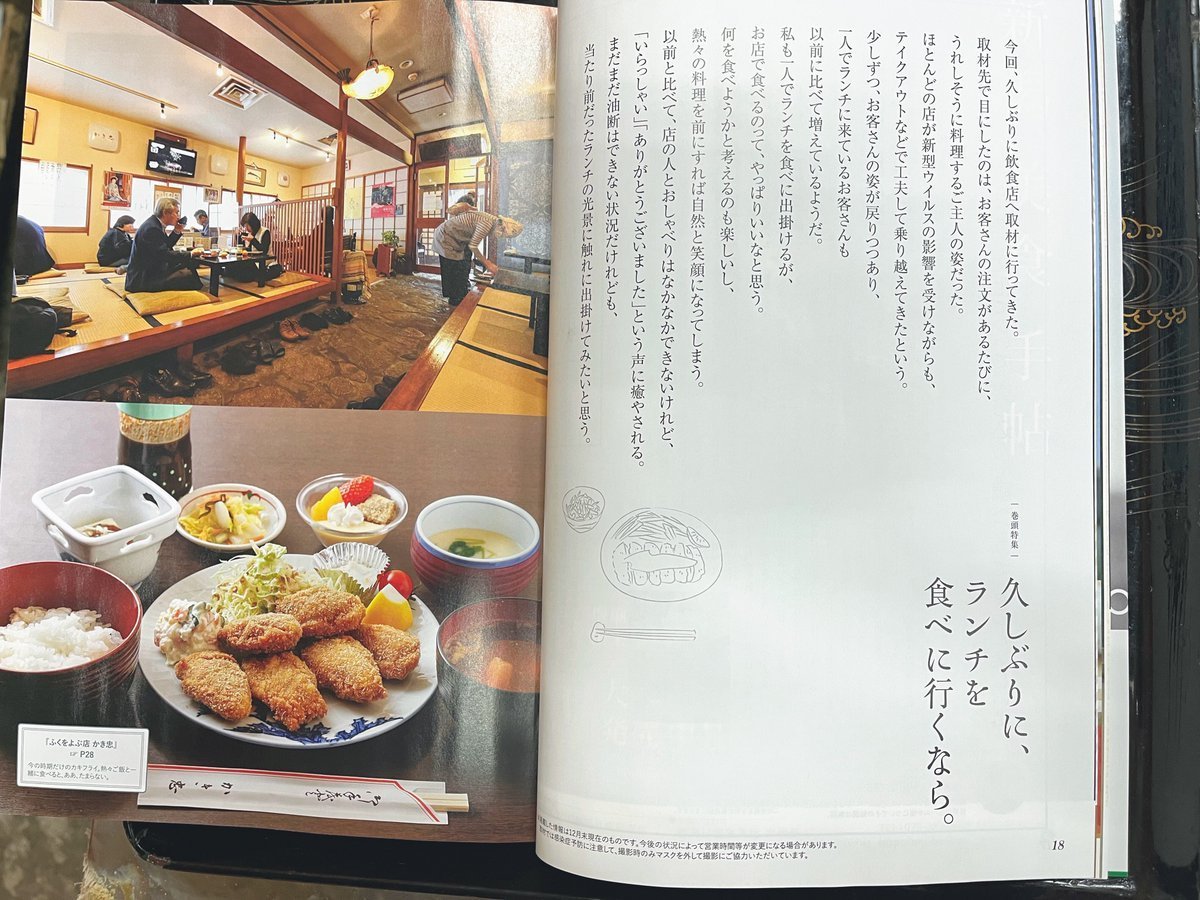 今回、久しぶりに飲食店へ取材に行ってきた。
取材先で目にしたのは、お客さんの注文があるたびに、
うれしそうに料理するご主人の姿だった。
ほとんどの店が新型ウイルスの影響を受けながらも、
テイクアウトなどで工夫して乗り越えてきたという。
少しずつ、お客さんの姿が戻りつつあり、
一人でランチに来ているお客さんも
以前に比べて増えているようだ。
私も一人でランチを食べに出掛けるが、
お店で食べるのって、やっぱりいいなと思う。
何を食べようかと考えるのも楽しいし、
熱々の料理を前にすれば自然と笑顔になってしまう。
以前と比べて、店の人とおしゃべりはなかなかできないけれど、
「いらっしゃい」「ありがとうございました」という声に癒やされる。
まだまだ油断はできない状況だけれども、
当たり前だったランチの光景に触れに出掛けてみたいと思う。
巻頭特集
久しぶりに、
ランチを
食べに行くなら。
『ふくをよぶ店 かき忠』
☞ P28
今の時期だけのカキフライ。熱々ご飯と一
緒に食べると、ああ、たまらない。
かき忠
した情報は12月末現在のものです。今後の状況によって営業時間等が変更になる場合があります。
では感染症予防に注意して、撮影時のみマスクを外して撮影にご協力いただいています。
18